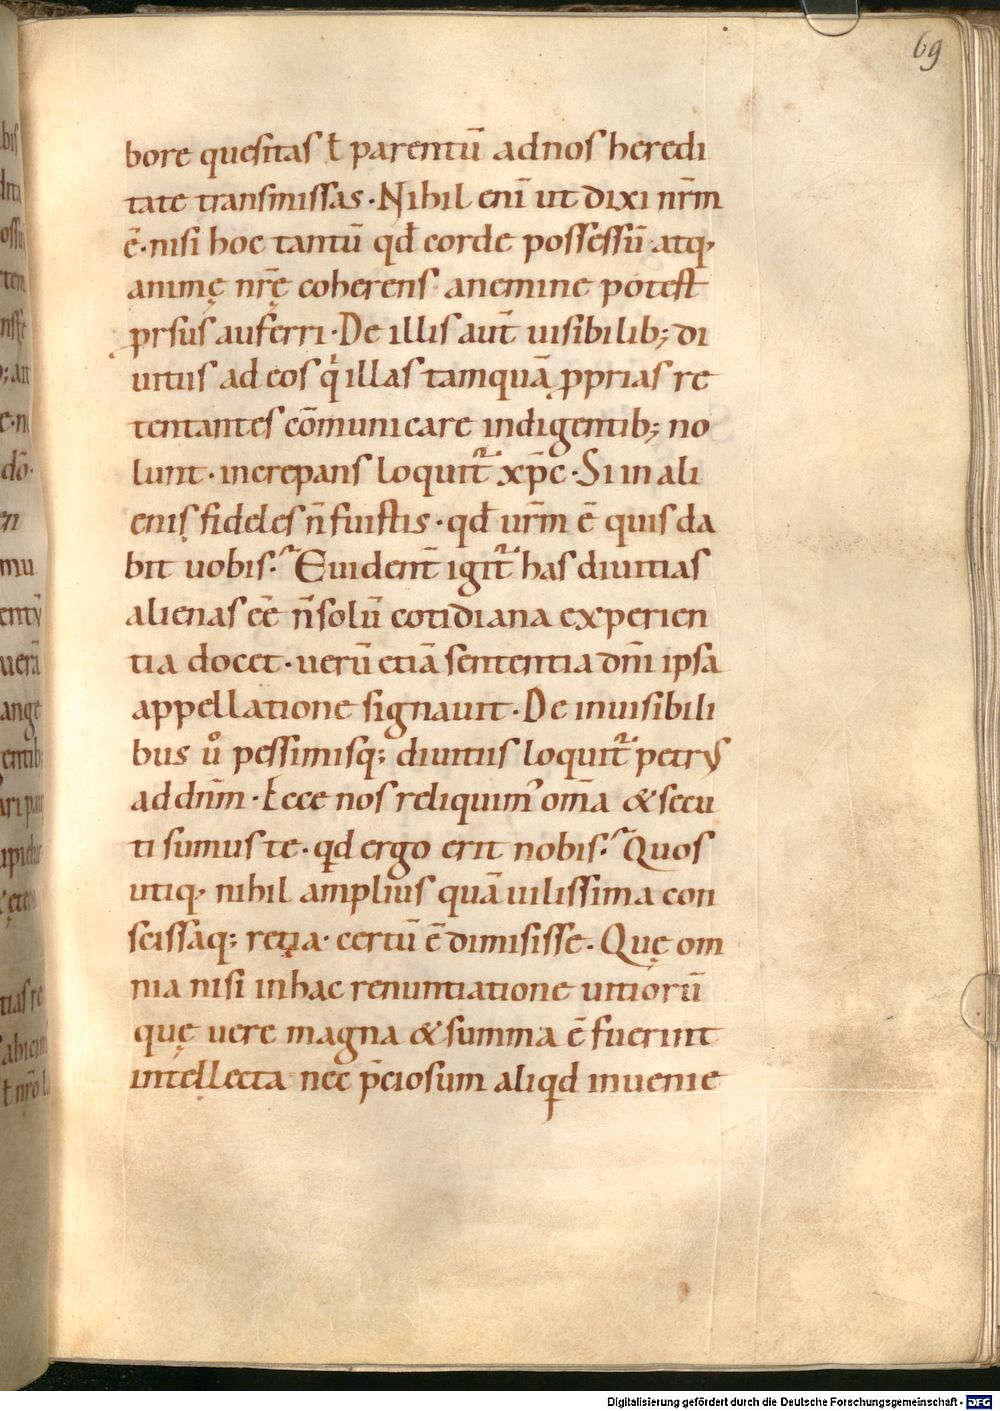 69
bore quesitas ł parentū adnos heredi
tate transmissas · Nihil enī ut dixi nr̄m
ē · nisi hoc tantū qđ corde possessū atq;
animę nr̄ę coherens · anemine potest
prsus auferri · De illis aut̄ uisibilib; di
uitiis ad eos qͥ illas tamquā pprias re
tentantes cōmunicare indigentib; no
lunt · increpans loquit᷑ xp̄c · Si in ali
enis fideles n̄ fuistis · qđ ur̄m ē quis da
bit uobis? Euident̄ igit᷑ has diuitias
alienas eē n̄ solū cotidiana experien
tia docet · uerū etiā sententia dn̄i ipsa
appellatione signauit · De inuisibili
bus uͦ pessimisq; diuitiis loquit᷑ petrꝰ
ad dn̄m · Ecce nos reliquimꝰ om̄a & secu
ti sumus te · qd ergo erit nobis? Quos
utiq; nihil amplius quā uilissima con
scissaq; retia · certū ē dimisisse · Quę om
nia nisi inhac renuntiatione uitiorū
quę uere magna & summa ē fuerint
intellecta nec p̄ciosum aliqd inuenie
Digitalisierung gefördert durch die Deutsche Forschungsgemeinschaft - DFG